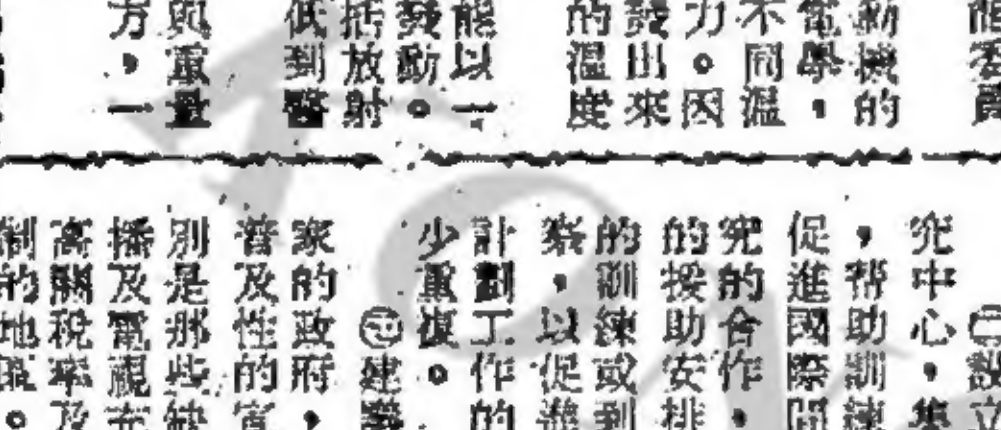 委員
動機的
電學，
不同溫
力。因
發出來
的溫度
能以一
發動。
括放射
低到
與重量
方，一
究中心，集
，幫助訓練
促進國際間
究的合作，
的接助安排
的訓練或到
，以促進
計劃工作的
少重復。
建議
家的政府，
普及性的
別是那些
播及電視
高關稅率及
制的地區。